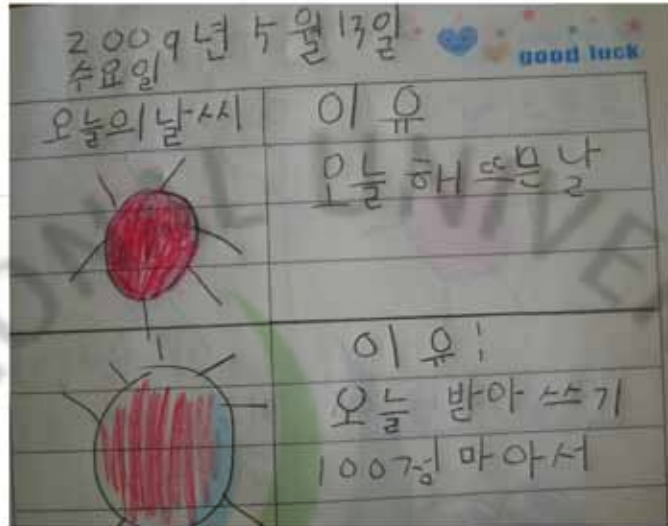 2009년 5월 13일
수요일
good luck
오늘의 날씨
이유
오늘 해 뜨믄 날
이유!
오늘 받아 쓰기
100점 마아서